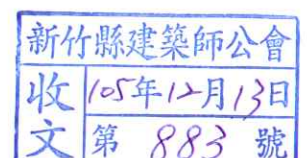 新竹縣建築師公會
收文
105年12月13日
第 883 號